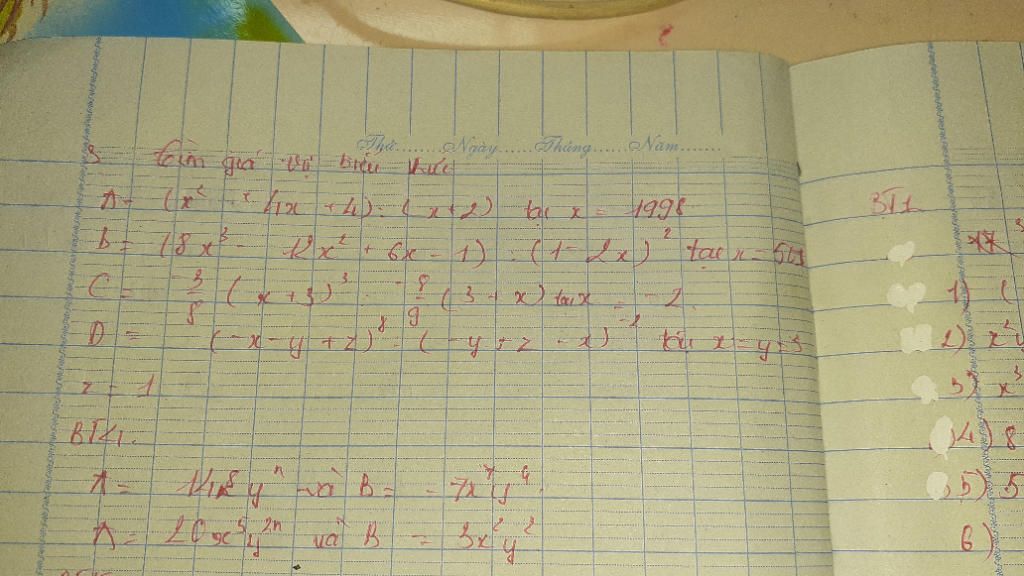 Thứ......Ngày......Tháng......Năm.......
3 tìm giá trị biểu thức
A = (x² + 4x + 4) : (x+2) tại x = 1998
B = (8x³ - 12x² + 6x - 1) : (1-2x)² tại x =
C = -3/8 (x+3)³ : -8/9 (3+x) tại x = -2.
D = (-x-y+z)⁸ : (-y+z-x) tại x=y=3
z = 1
BT4.
A = 14x⁸yⁿ và B = -7x⁷y⁴.
A = 20x⁵y²ⁿ và B = 3x²y²
BT1
1) (
2) x²y
3) x³
4) 8
5) 5
6)